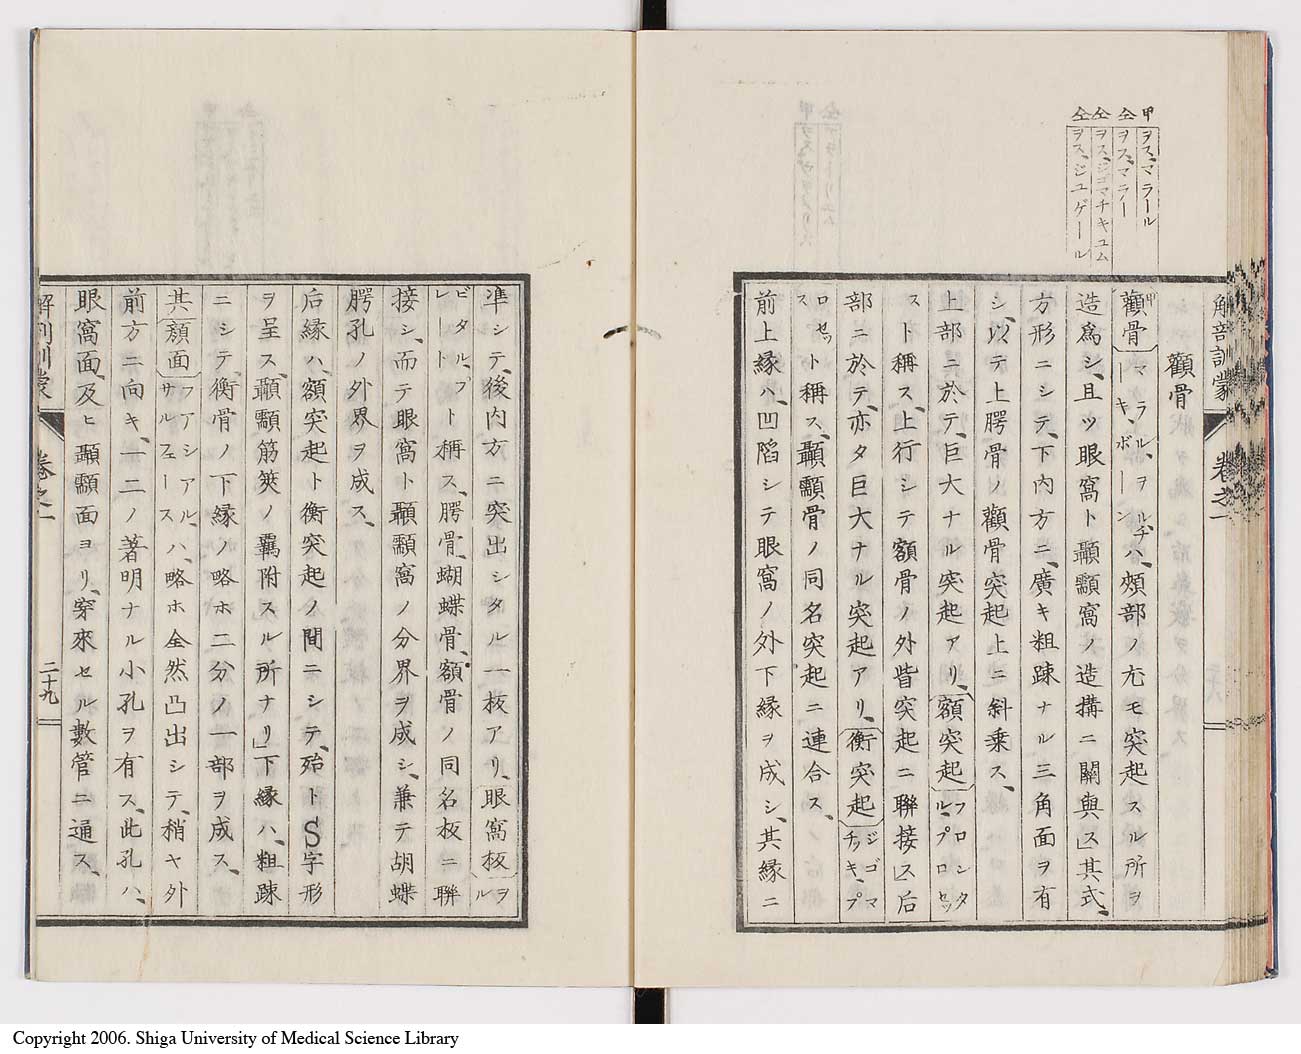 甲 ヲス、マラール
仝 ヲス、マラー
仝 ヲス、ジゴマチキュム
仝 ヲス、ジユゲール
解剖訓蒙 卷之一
顴骨
顴骨マラル、ヲルチーキ、ボーンハ、頰部ノ尤モ突起スル所ヲ
造爲シ、且ツ眼窩ト顳顬窩ノ造搆ニ關與ス」其式、
方形ニシテ、下内方ニ、廣キ粗踈ナル三角面ヲ有
シ、以テ上腭骨ノ顴骨突起上ニ斜乗ス、
上部ニ於テ、巨大ナル突起アリ、額突起フロンタル、プロセッ
スト稱ス、上行シテ額骨ノ外眥突起ニ聯接ス」后
部ニ於テ、亦タ巨大ナル突起アリ、衡突起ジゴマチッキ、プ
ロセッスト稱ス、顳顬骨ノ同名突起ニ連合ス、
前上縁ハ、凹陷シテ眼窩ノ外下縁ヲ成シ、其縁ニ
準シテ、後内方ニ突出シタル一板アリ、眼窩板ヲル
ビタル、プレートト稱ス、腭骨、蝴蝶骨、額骨ノ同名板ニ聯
接シ、而テ眼窩ト顳顬窩ノ分界ヲ成シ、兼テ胡蝶
腭孔ノ外界ヲ成ス、
后縁ハ、額突起ト衡突起ノ間ニシテ、殆トS字形
ヲ呈ス、顳顬筋筴ノ羈附スル所ナリ」下縁ハ、粗踈
ニシテ、衡骨ノ下縁ノ略ホ二分ノ一部ヲ成ス、
其顔面ファシアル、サルフェースハ、略ホ全然凸出シテ、稍ヤ外
前方ニ向キ、一二ノ著明ナル小孔ヲ有ス、此孔ハ、
眼窩面、及ヒ顳顬面ヨリ、穿來セル數管ニ通ス、
卷之一 二十九
Copyright 2006. Shiga University of Medical Science Library